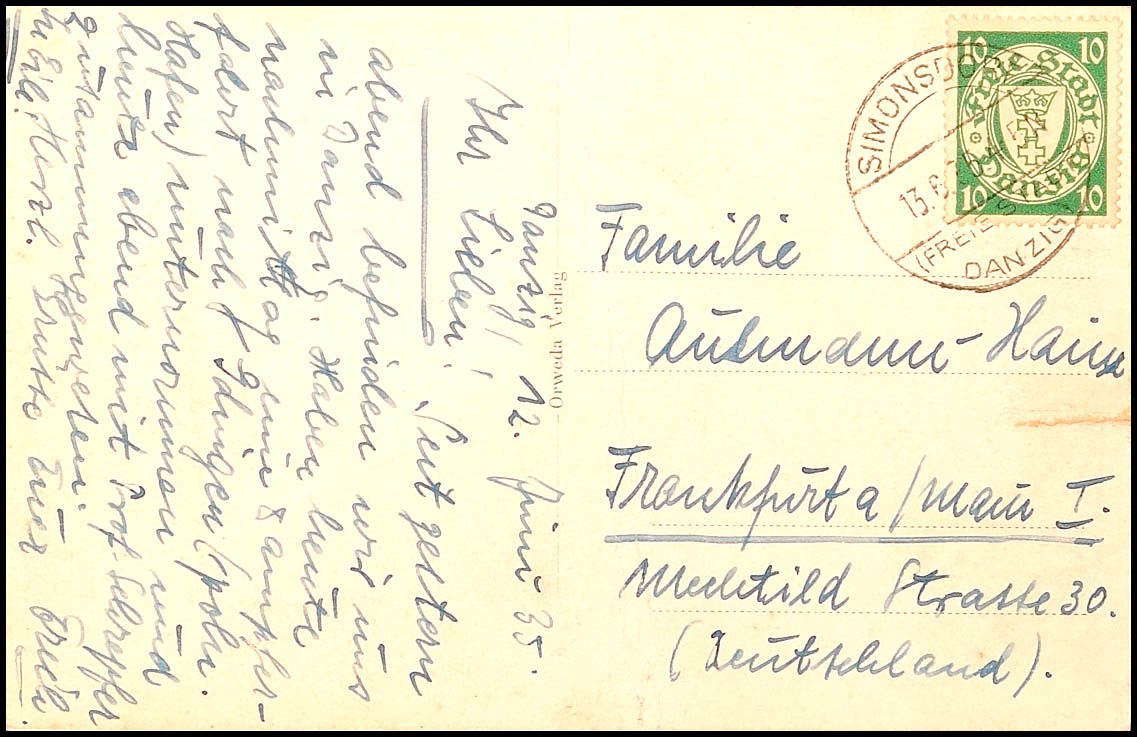 Danzig, 12. Juni 35.
Ihr Lieben! Seit gestern
abend befinden wir uns
in Danzig. Haben heute
nachmittag eine Dampfer-
fahrt nach Gdingen (poln.
Hafen) unternommen und
heute abend mit Prof. Schrepfer
zusammengesessen.
In Eile. Herzl. Grüsse Euer Erich.
Orweda Verlag
10 10
Freie Stadt
Danzig
10 10
SIMONSDORF
13.6.
(FREIE STADT
DANZIG)
Familie
Autmann-Hain
Frankfurt a/Main I.
Mechtild Strasse 30.
(Deutschland).